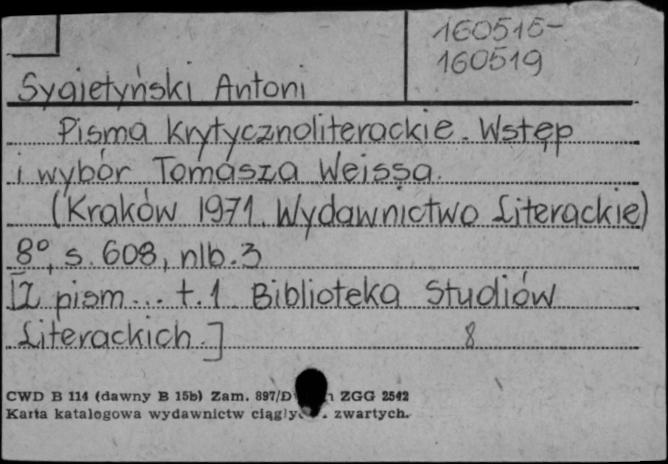 160515-
160519
Sygietyński Antoni
Pisma krytycznoliterackie. Wstęp
i wybór Tomasza Weissa.
(Kraków 1971. Wydawnictwo Literackie)
8°, s. 608, nlb. 3
[Z pism... t. 1 Biblioteka Studiów
Literackich.]
8
CWD B 114 (dawny B 15b) Zam. 897/D ZGG 2542
Karta katalogowa wydawnictw zwartych.